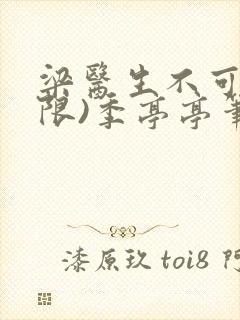 梁醫生不可
限)季亭亭筆
漆原玖 toi8 阿